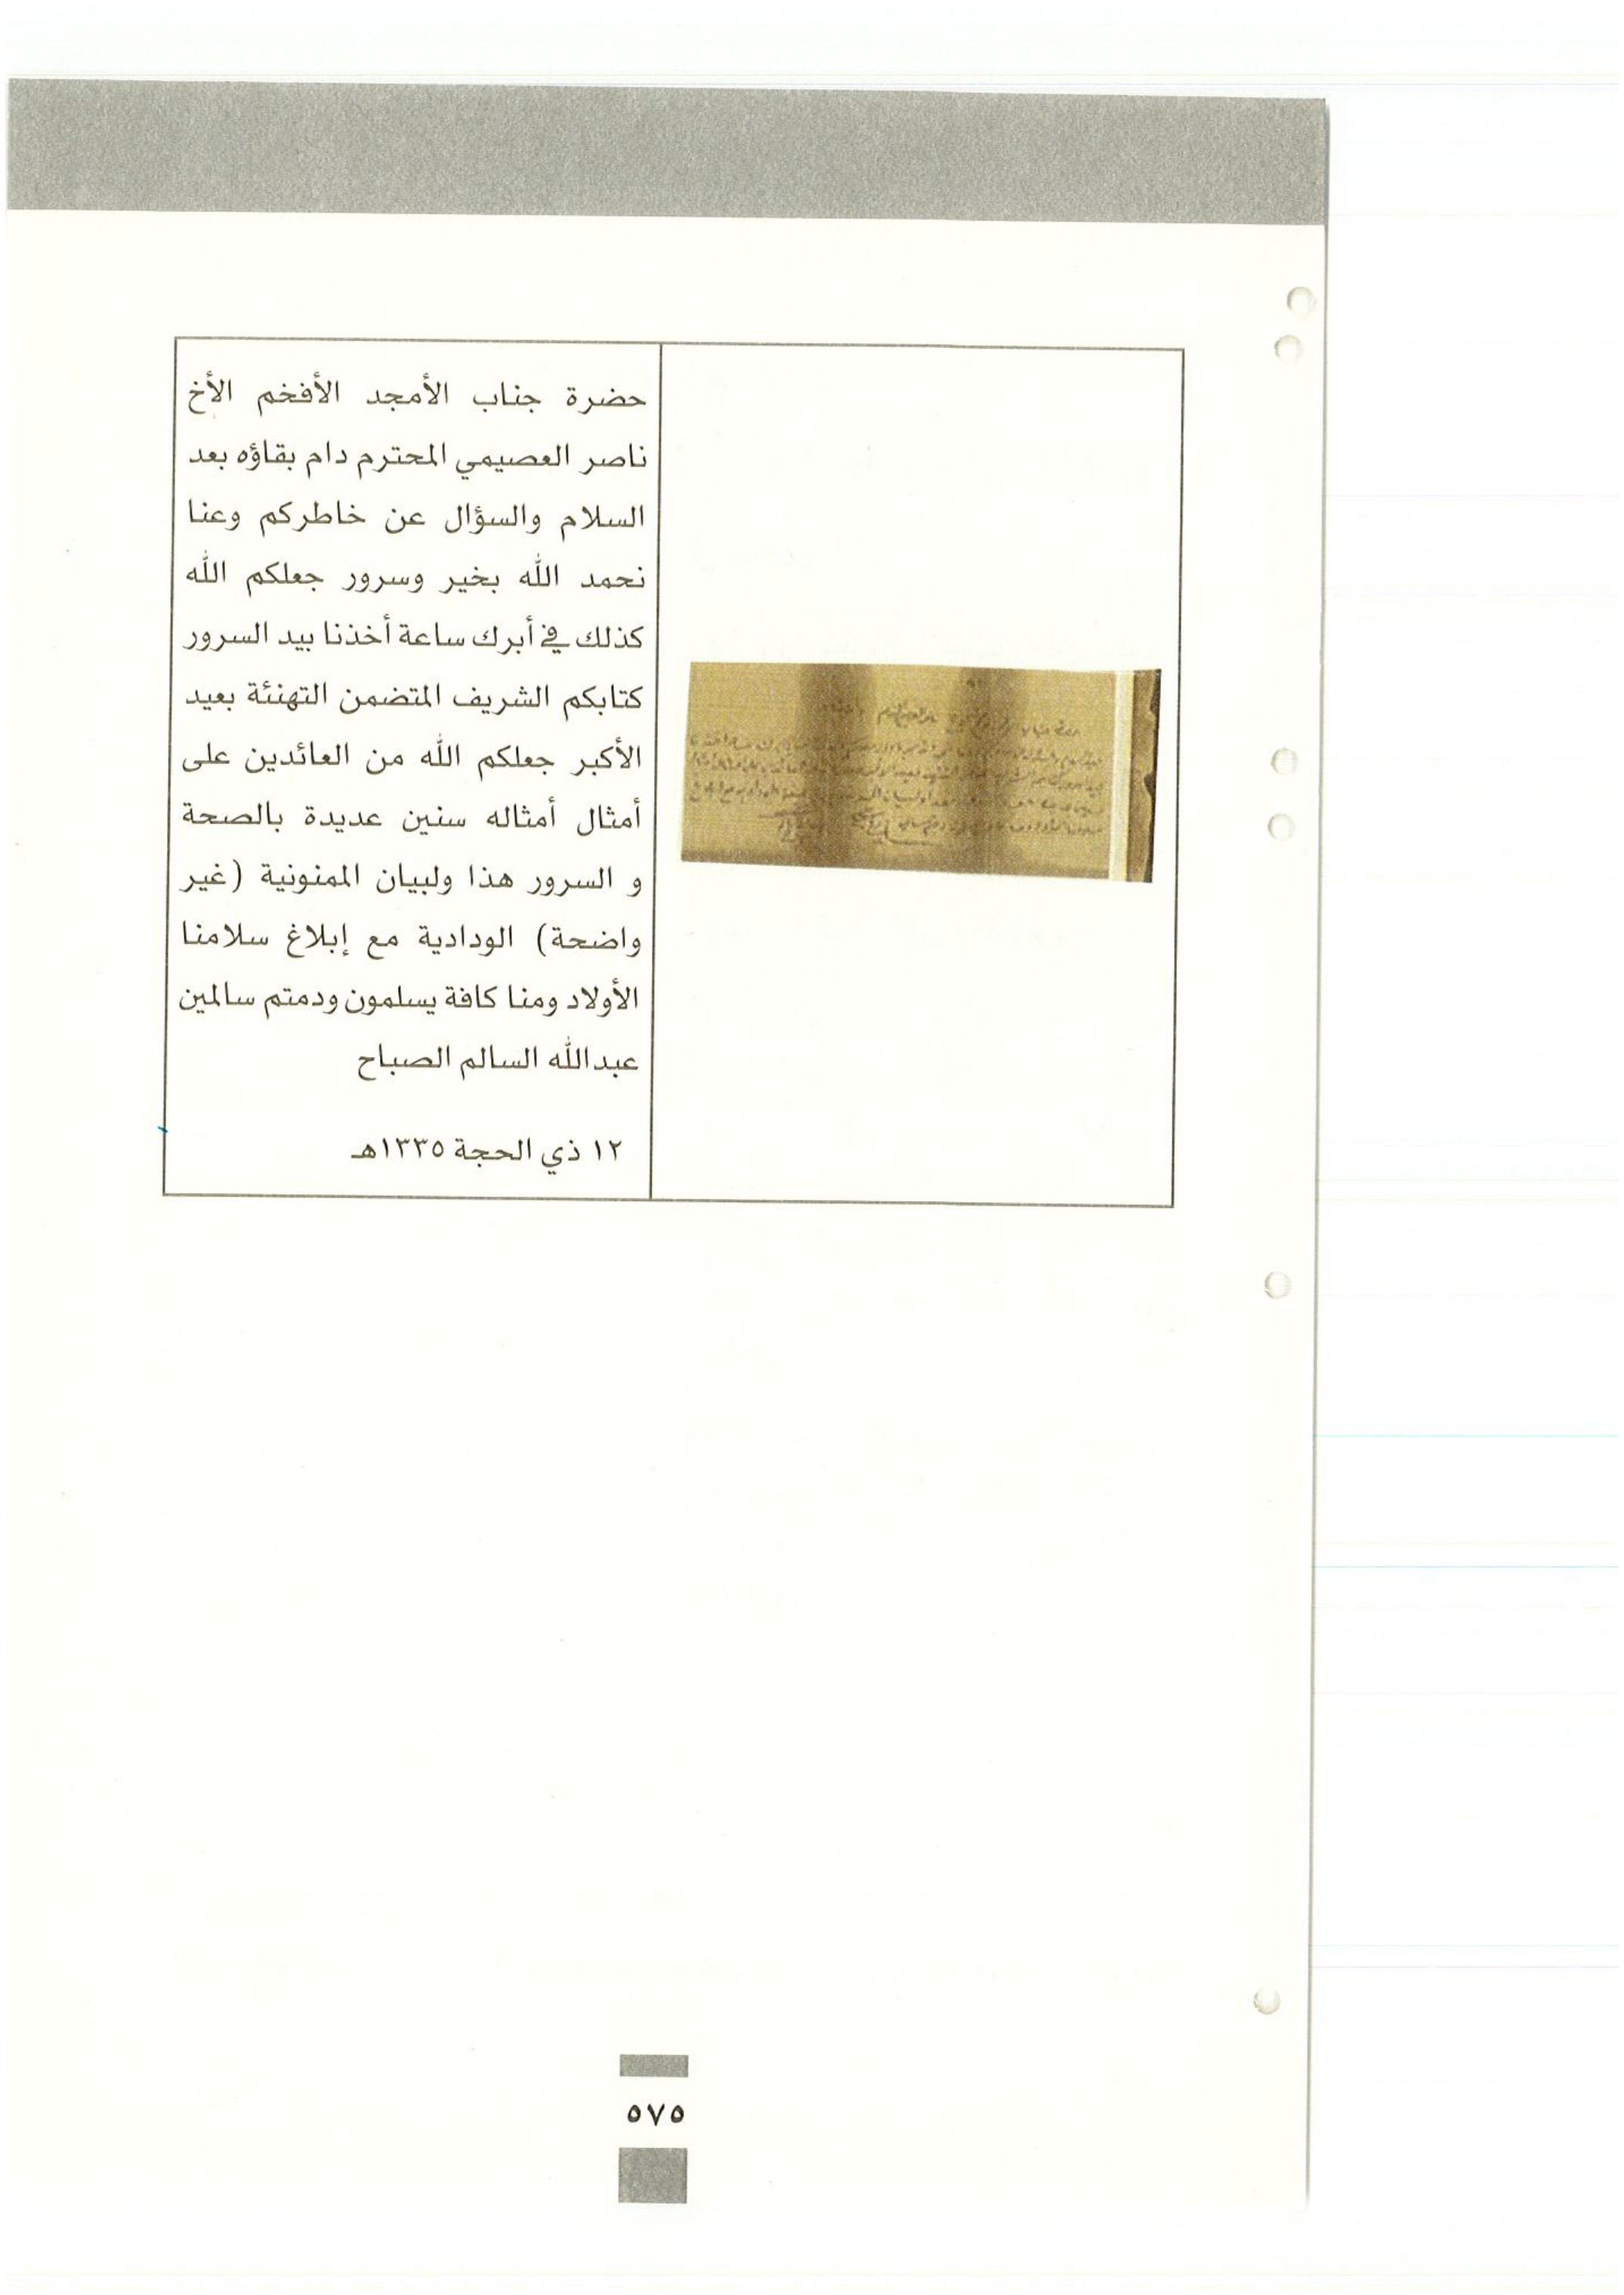 حضرة جناب الأمجد الأفخم الأخ
ناصر العصيمي المحترم دام بقاؤه بعد
السلام والسؤال عن خاطركم وعنا
نحمد الله بخير وسرور جعلكم الله
كذلك في أبرك ساعة أخذنا بيد السرور
كتابكم الشريف المتضمن التهنئة بعيد
الأكبر جعلكم الله من العائدين على
أمثال أمثاله سنين عديدة بالصحة
و السرور هذا ولبيان الممنونية (غير
واضحة) الودادية مع إبلاغ سلامنا
الأولاد ومنا كافة يسلمون ودمتم سالمين
عبدالله السالم الصباح
١٢ ذي الحجة ١٣٣٥هـ
٥٧٥